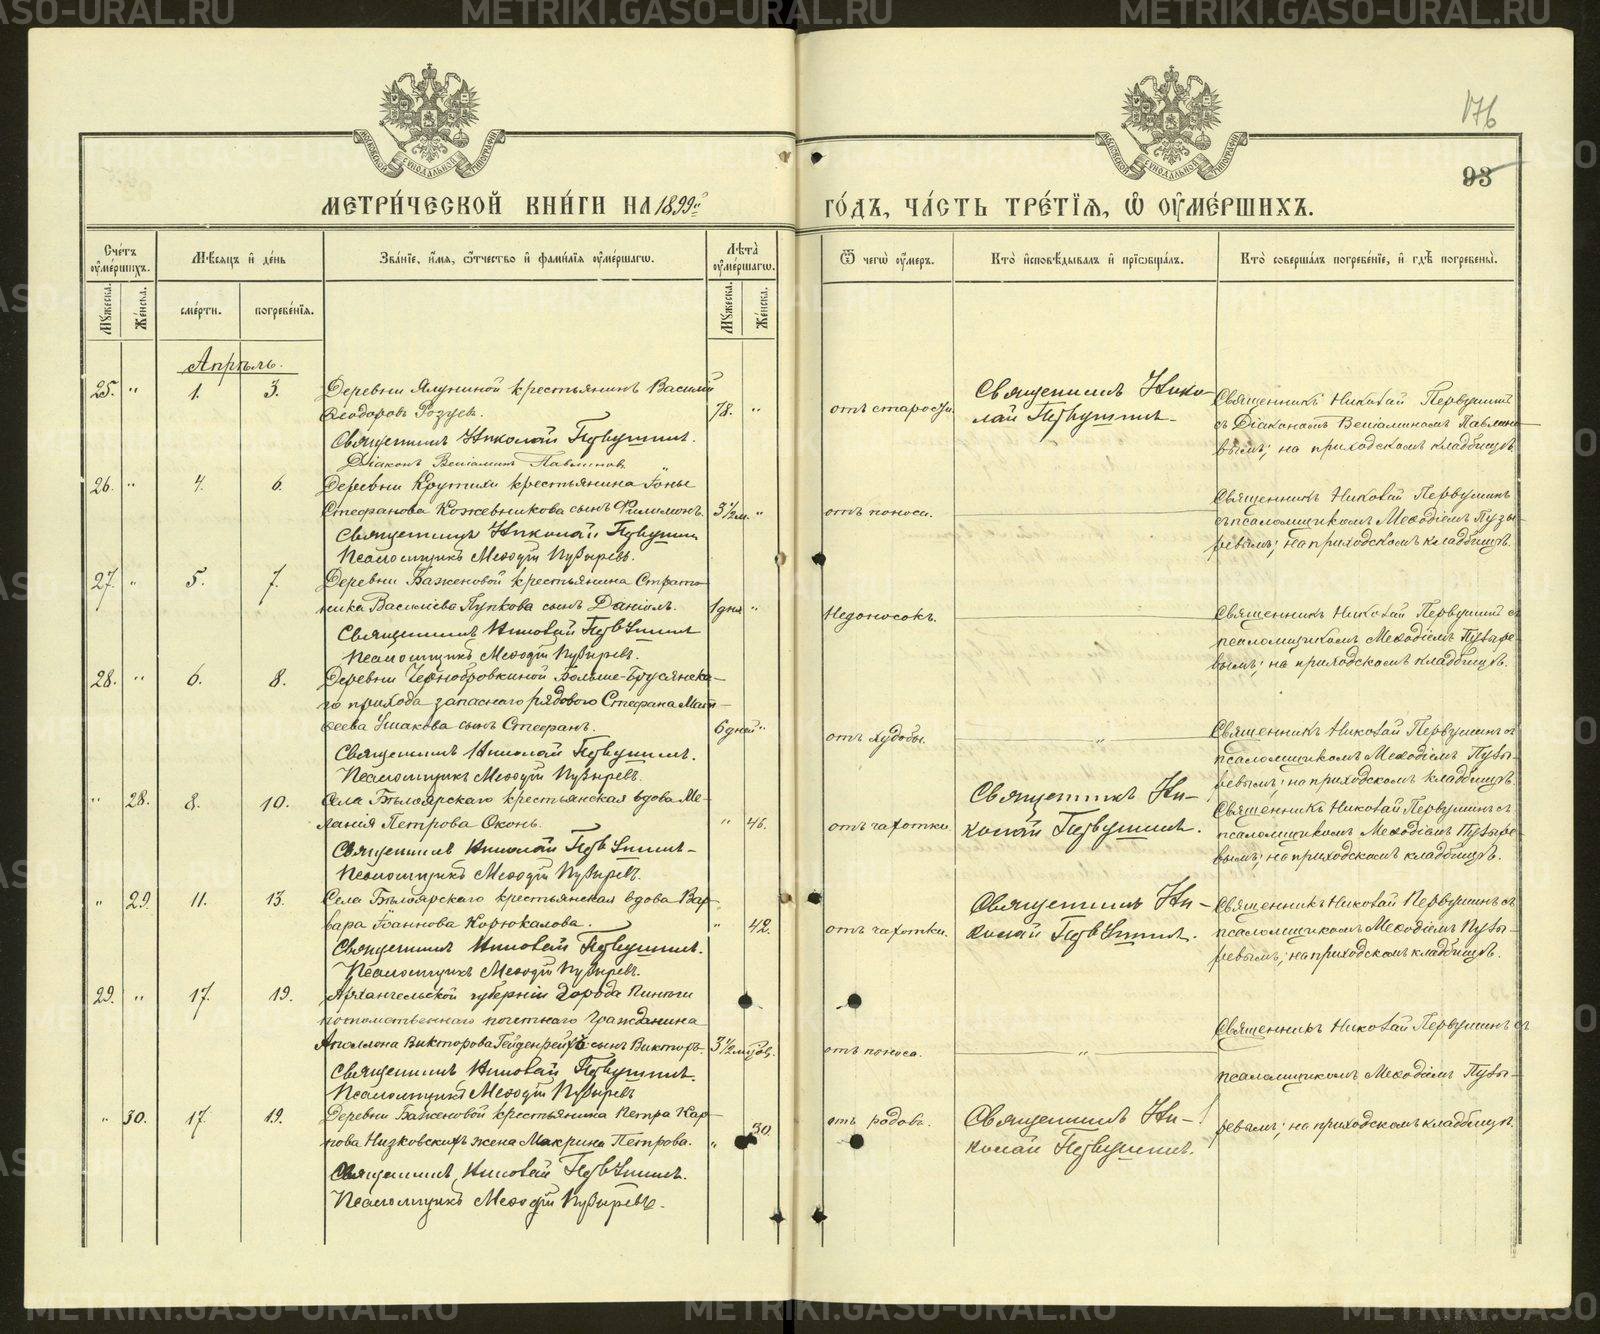 176
93
МЕТРИ́ЧЕСКОЙ КНИ́ГИ НА 1899й
ГО́ДЪ, ЧА́СТЬ ТРЕ́ТІЯ, Ѡ ОУ҆МЕ́РШИХЪ.
Сче́тъ оу҆ме́ршихъ.
Мѣ́сяцъ и҆ де́нь
Зва́нїе, и҆́мя, ѻ҆́тчество и҆ фами́лїя оу҆ме́ршагѡ.
Лѣ́та оу҆ме́ршагѡ.
Ѿ чегѡ̀ оу҆́меръ.
Кто̀ и҆сповѣ́дывалъ и҆ прїѡбща́лъ.
Кто̀ соверша́лъ погребе́нїе, и҆ гдѣ̀ погребены̀.
Му́жеска.
Же́нска.
сме́рти.
погребе́нїя.
Му́жеска.
Же́нска.
Апрѣль.
25. " 1. 3. Деревни Ялуниной крестьянинъ Василій
Ѳеодоровъ 78. " отъ старости.
Священникъ Николай Первушинъ.
Діаконъ Веніаминъ Павлиновъ
Священникъ Нико-
лай Первушинъ
Священникъ Николай Первушинъ
съ Діакономъ Веніаминомъ Павлино-
вымъ; на приходскомъ кладбищѣ
26. " 4. 6. Деревни Крутихи крестьянина Іоны
Стефанова Кожевникова сынъ Филимонъ. 3½ м. " отъ поноса.
Священникъ Николай Первушинъ
Псаломщикъ Меѳодій Пузыревъ.
Священникъ Николай Первушинъ
съ псаломщикомъ Меѳодіемъ Пузы-
ревымъ; на приходскомъ кладбищѣ.
27. " 5. 7. Деревни Баженовой крестьянина Страто-
ника Василіева Пупкова сынъ Даніилъ. 1 дня " Недоносокъ.
Священникъ Николай Первушинъ
Псаломщикъ Меѳодій Пузыревъ.
Священникъ Николай Первушинъ съ
псаломщикомъ Меѳодіемъ Пузыре-
вымъ; на приходскомъ кладбищѣ.
28. " 6. 8. Деревни Чернобровкиной Больше-Брусянска-
го прихода запаснаго рядового Стефана Мат-
ѳеева Ушакова сынъ Стефанъ. 6 дней " отъ худобы. "
Священникъ Николай Первушинъ.
Псаломщикъ Меѳодій Пузыревъ.
Священникъ Николай Первушинъ съ
псаломщикомъ Меѳодіемъ Пузы-
ревымъ; на приходскомъ кладбищѣ.
" 28. 8. 10. Села Бѣлоярскаго крестьянская вдова Ме-
ланія Петрова Оконь. " 46. отъ чахотки.
Священникъ Николай Первушинъ-
Псаломщикъ Меѳодій Пузыревъ.
Священникъ Ни-
колай Первушинъ.
Священникъ Николай Первушинъ съ
псаломщикомъ Меѳодіемъ Пузыре-
вымъ; на приходскомъ кладбищѣ.
" 29. 11. 13. Села Бѣлоярскаго крестьянская вдова Вар-
вара Іоаннова Корюкалова. " 42. отъ чахотки.
Священникъ Николай Первушинъ.
Псаломщикъ Меѳодій Пузыревъ.
Священникъ Ни-
колай Первушинъ.
Священникъ Николай Первушинъ съ
псаломщикомъ Меѳодіемъ Пузы-
ревымъ; на приходскомъ кладбищѣ.
29. " 17. 19. Архангельской губерніи города Пинеги
потомственнаго почетнаго гражданина
Аполлона Викторова Гейденрейхъ сынъ Викторъ. 3½ мѣсяцов. отъ поноса. "
Священникъ Николай Первушинъ.
Псаломщикъ Меѳодій Пузыревъ
Священникъ Николай Первушинъ съ
псаломщикомъ Меѳодіемъ Пузы-
ревымъ; на приходскомъ кладбищѣ.
" 30. 17. 19. Деревни Баженовой крестьянина Петра Кар-
пова Низковскихъ жена Макрина Петрова. " 30. отъ родовъ.
Священникъ Николай Первушинъ.
Псаломщикъ Меѳодій Пузыревъ.
Священникъ Ни-
колай Первушинъ.
METRIKI.GASO-URAL.RU